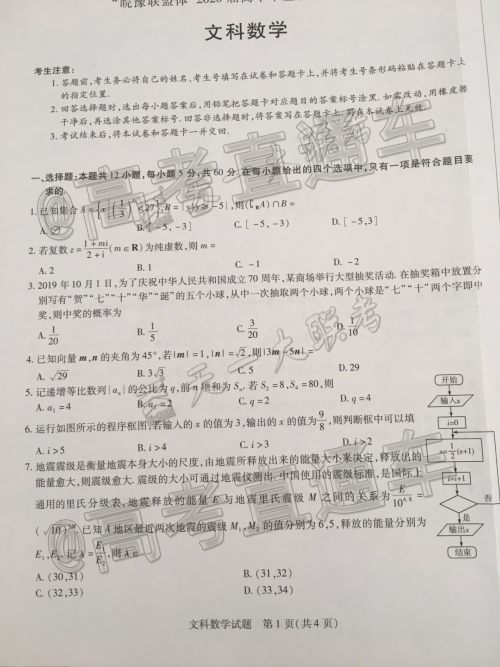 "皖豫联盟体"2020届高中毕业
文科数学
考生注意:
1. 答题前,考生务必将自己的姓名、考生号填写在试卷和答题卡上,并将考生号条形码粘贴在答题卡上
的指定位置.
2. 回答选择题时,选出每小题答案后,用铅笔把答题卡对应题目的答案标号涂黑.如需改动,用橡皮擦
干净后,再选涂其他答案标号.回答非选择题时,将答案写在答题卡上.写在本试卷上无效.
3. 考试结束后,将本试卷和答题卡一并交回.
一、选择题:本题共12小题,每小题5分,共60分.在每小题给出的四个选项中,只有一项是符合题目要
求的.
1. 已知集合A={x|(1/3)^x<27},B={x|x≥-5},则(∁_R A)∩B=
A. ∅ B. [-5,-3] C. [-5,-3) D. [-5,3]
2. 若复数z=(1+mi)/(2+i)(m∈R)为纯虚数,则m=
A. 2 B. 1 C. -1 D. -2
3. 2019年10月1日,为了庆祝中华人民共和国成立70周年,某商场举行大型抽奖活动.在抽奖箱中放置分
别写有"贺""七""十""华""诞"的五个小球,从中一次抽取两个小球,两个小球是"七""十"两个字即中
奖,则中奖的概率为
A. 1/20 B. 1/5 C. 3/20 D. 1/10
4. 已知向量m,n的夹角为45°,若|m|=1,|n|=√2,则|3m-5n|=
A. √29 B. 3√3 C. 5 D. 29
5. 记递增等比数列{a_n}的公比为q,前n项和为S_n.若S_2=8,S_4=80,则
A. a_1=4 B. a_1=2 C. q=2 D. q=4
6. 运行如图所示的程序框图,若输入的x的值为3,输出的x的值为9/8,则判断框中可以填
A. i>5 B. i>4 C. i>3 D. i>2
7. 地震震级是衡量地震本身大小的尺度,由地震所释放出来的能量大小来决定,释放出的
能量愈大,则震级愈大.震级的大小可通过地震仪测出.中国使用的震级标准,是国际上
通用的里氏分级表,地震释放的能量E与地震里氏震级M之间的关系为E/10^4.8=
(√10)^3M.已知A地区最近两次地震的震级M_1,M_2的值分别为6,5,释放的能量分别为
E_1,E_2.记λ=E_1/E_2,则λ∈
A. (30,31) B. (31,32)
C. (32,33) D. (33,34)
开始
输入x
i=0
x=1/2(x+1)
i=i+1
否
是
输出x
结束
文科数学试题 第1页(共4页)
@高考直通车
天一大联考
@高考直通车